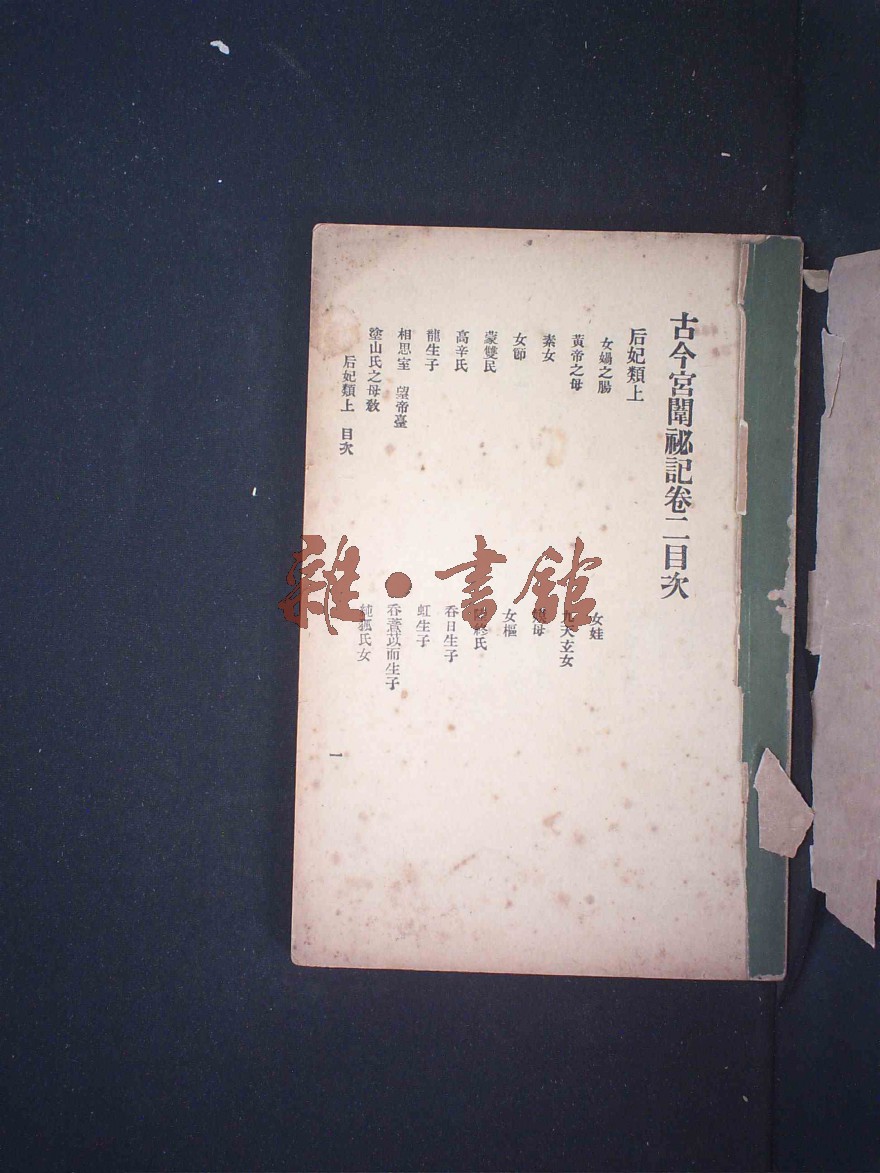 古今宮闈祕記卷二目次
后妃類上
女媧之腸
女娃
黃帝之母
九天玄女
素女
母
女節
女樞
蒙雙民
修氏
高辛氏
吞日生子
龍生子
虹生子
相思室 望帝臺
吞薏苡而生子
塗山氏之母教
純狐氏女
后妃類上 目次
一
雜·書館